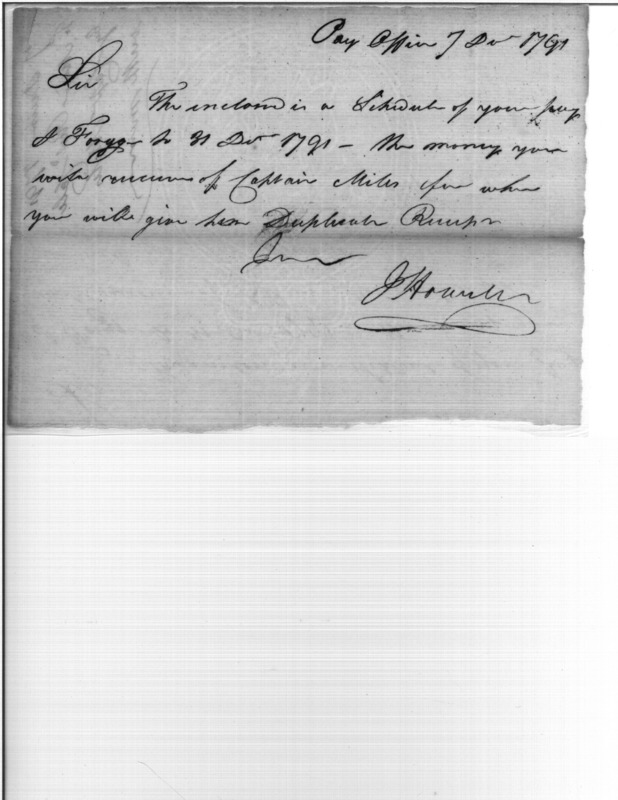 Pay Office 7 Decr 1791
Sir
The inclosed is a Schedule of your pay
& Forage to 31 Decr 1791 – the money you
will receive of Captain Mills for whom
you will give him Duplicate Receipts
J Howell